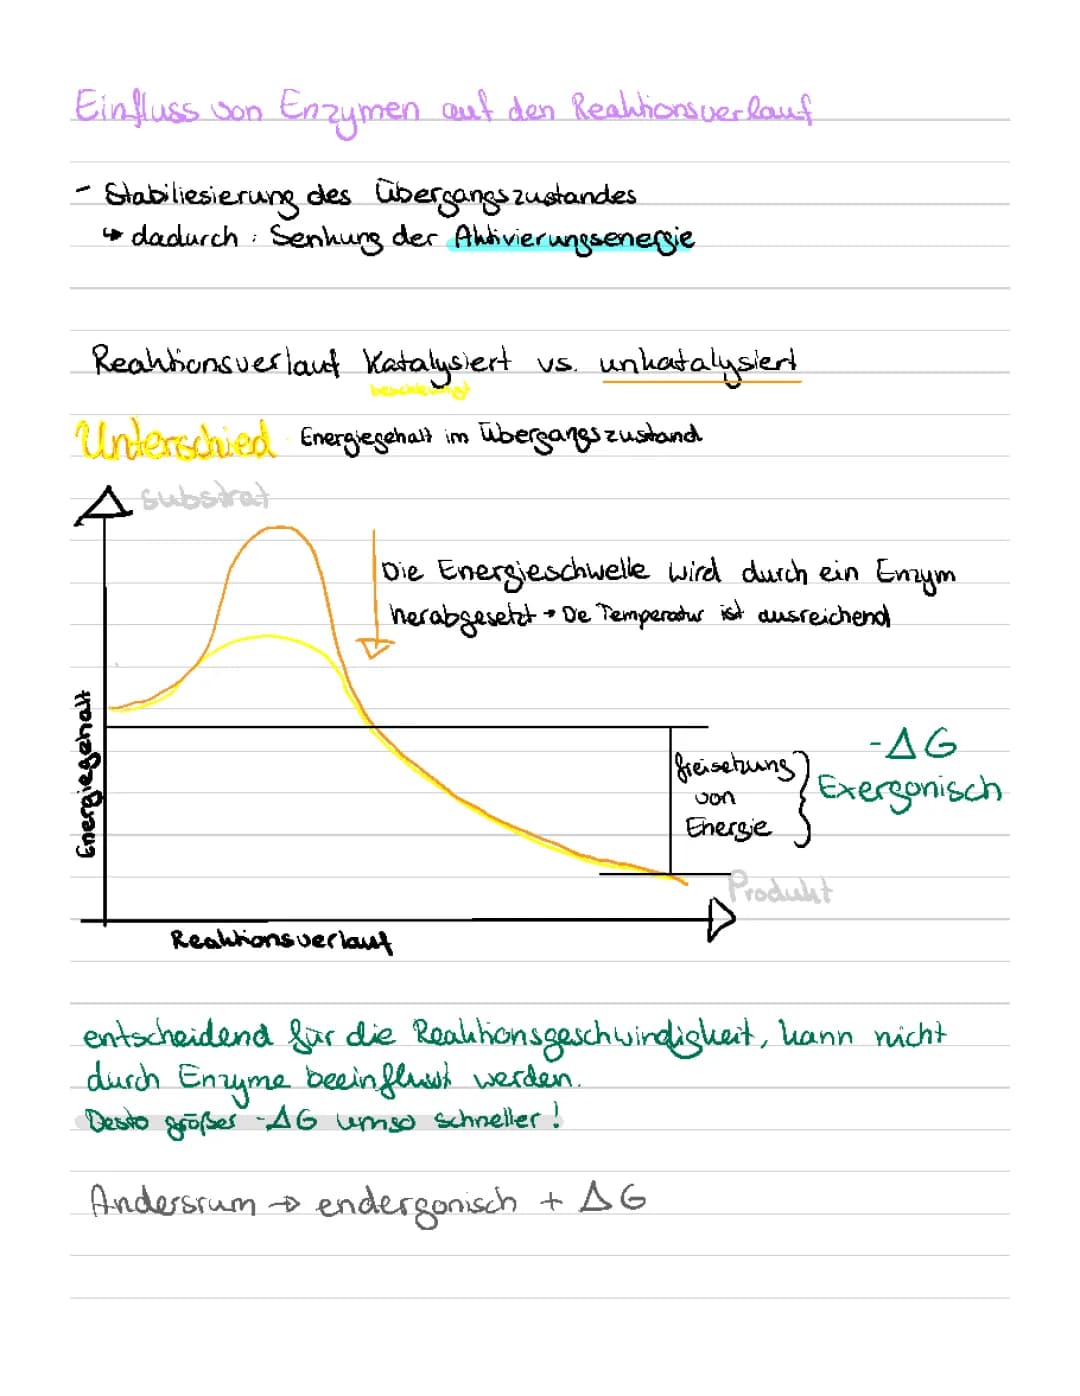 Einfluss von Enzymen auf den Reaktionsverlauf
- Stabiliesierung des Übergangszustandes
↳ dadurch : Senkung der Aktivierungsenergie
Reaktionsverlauf Katalysiert vs. unkatalysiert
beschleunigt
Unterschied Energiegehalt im Übergangszustand
Substrat
Die Energieschwelle wird durch ein Enzym
herabgesetzt → Die Temperatur ist ausreichend
Energiegehalt
freisetzung
von
Energie
-ΔG
Exergonisch
Produkt
Reaktionsverlauf
entscheidend für die Reaktionsgeschwindigkeit, kann nicht
durch Enzyme beeinflusst werden.
Desto größer -ΔG umso schneller!
Andersrum → endergonisch + ΔG